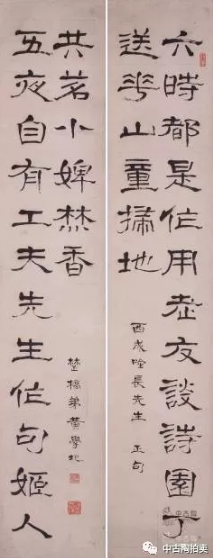 六時都是作用老友談詩園丁
送花山童掃地
長先生 正句
五夜自有工夫先生作句姬人
共茗小婢焚香
楚橋弟黃學圯
中古陶拍卖